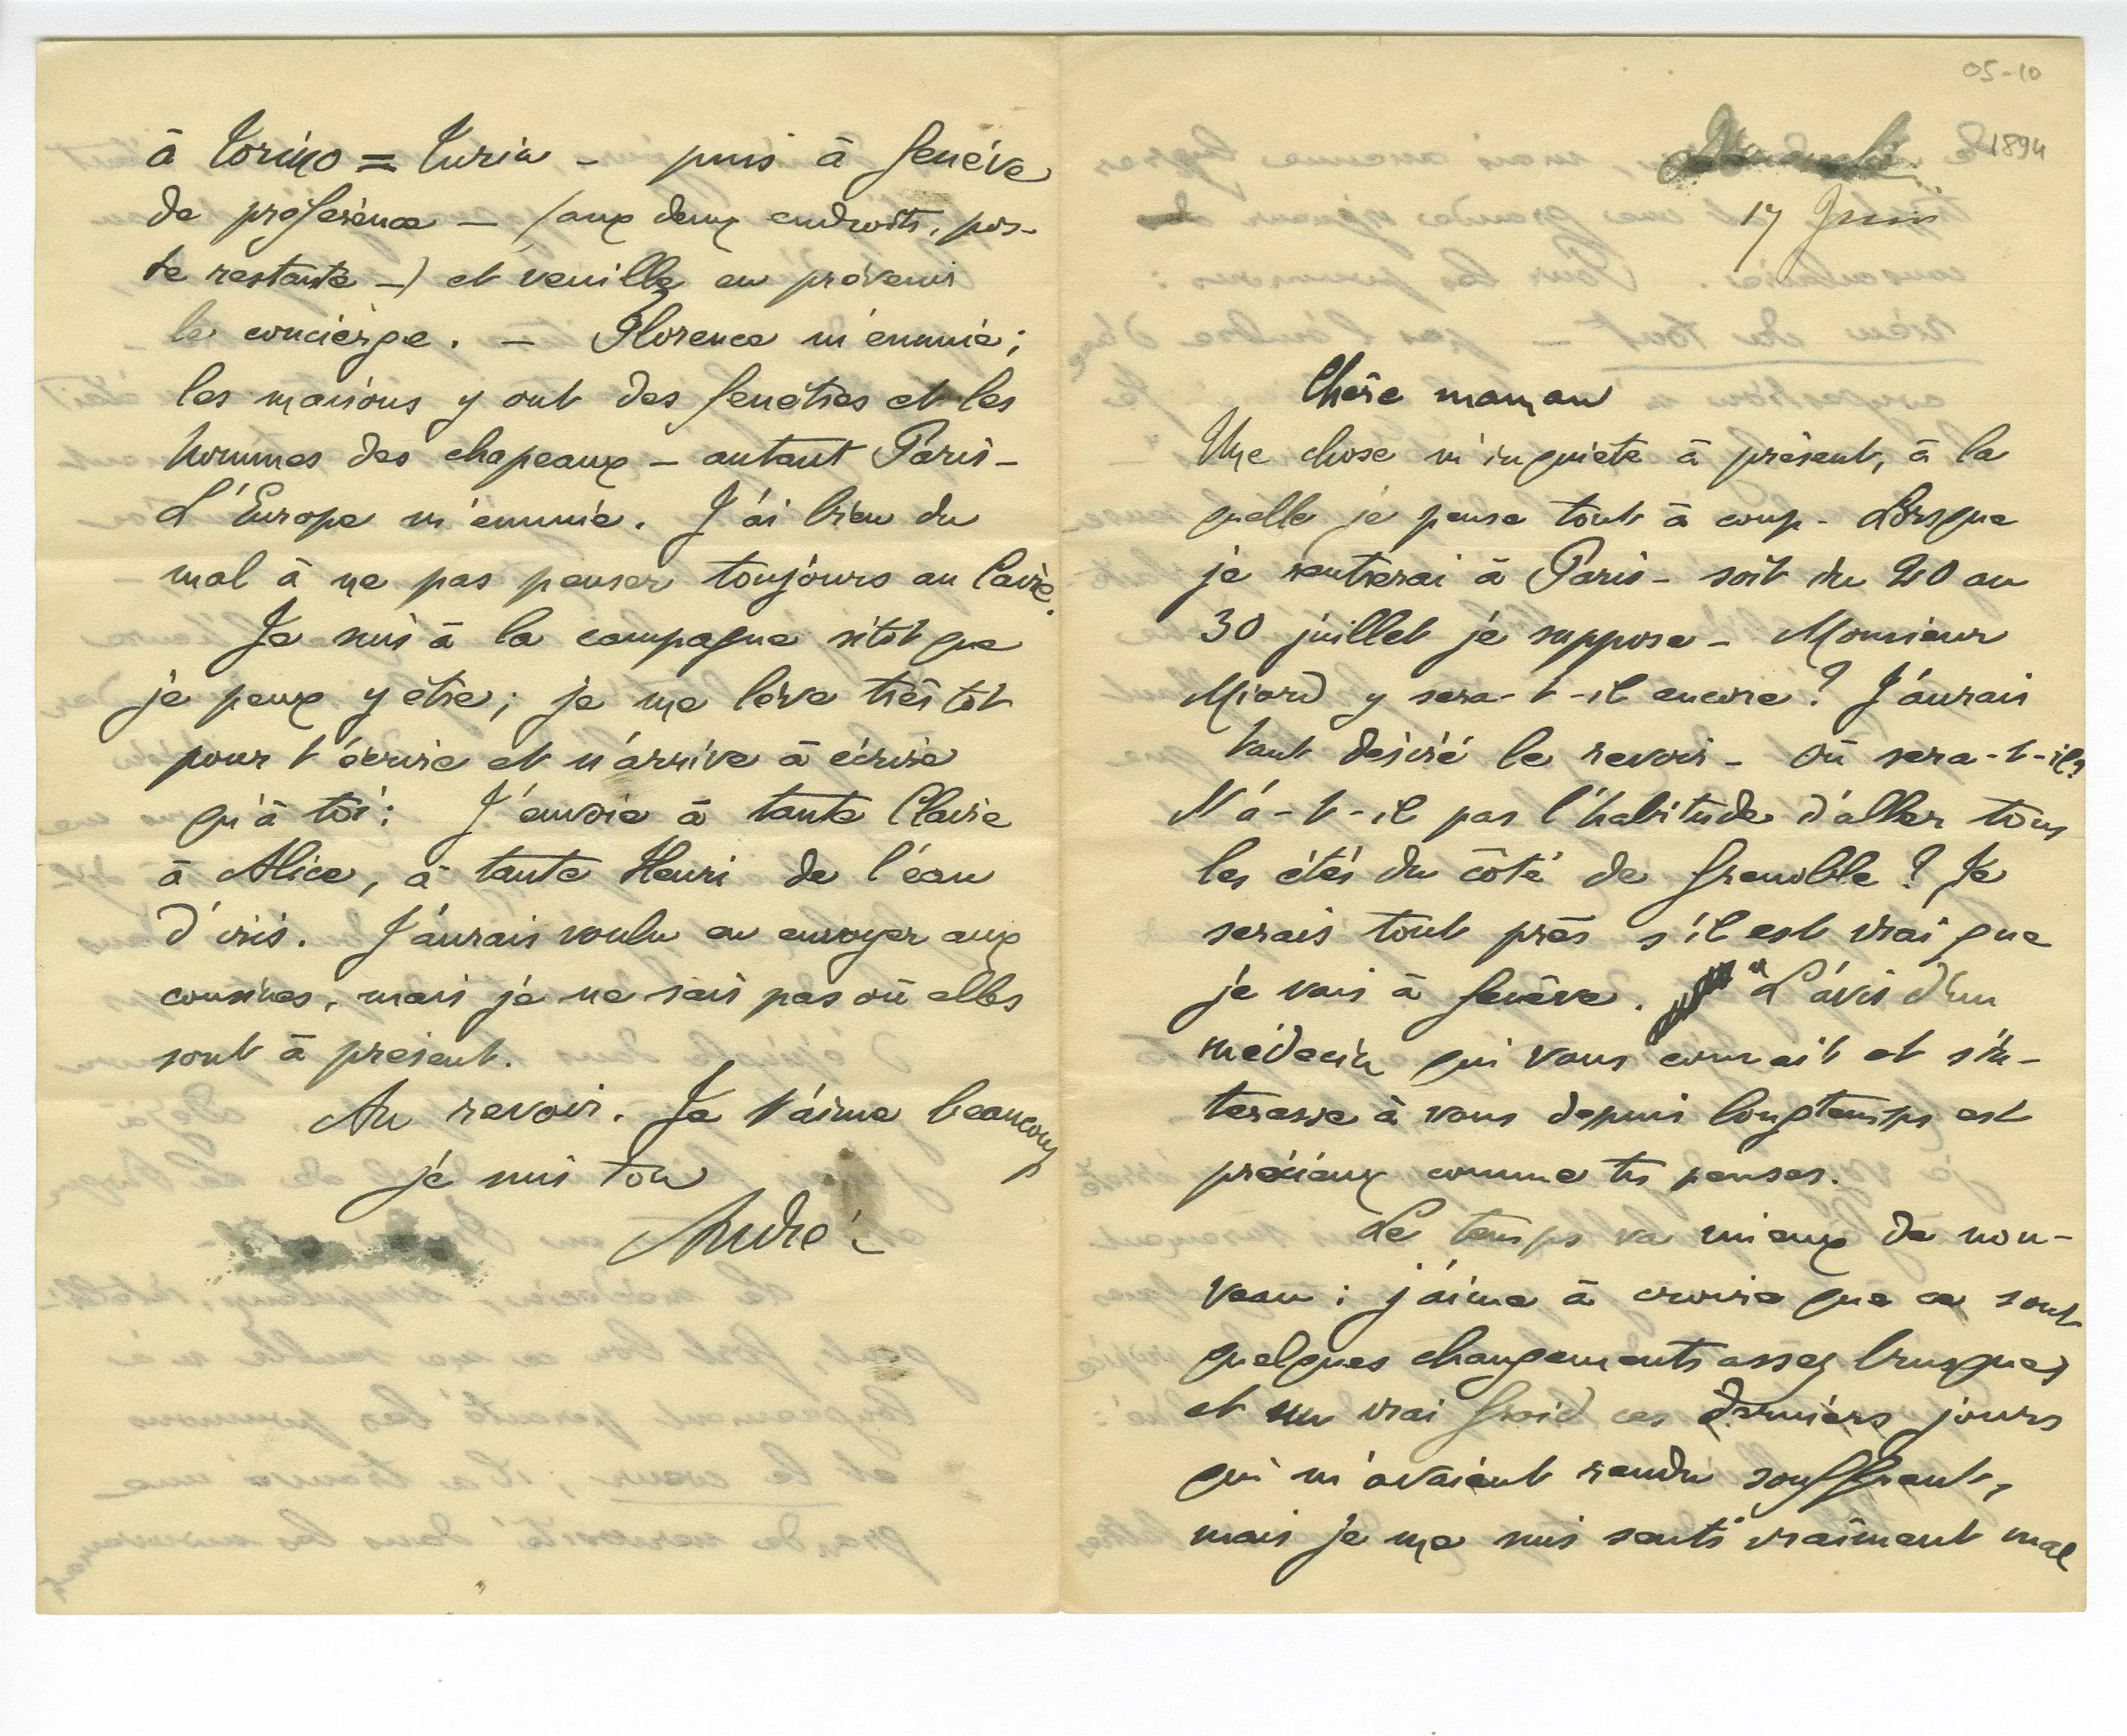 05-10
1894
17 Juin
Chère maman
Une chose m'inquiète à présent, à la
quelle je pense tout à coup - Lorsque
je rentrerai à Paris - soit du 20 au
30 juillet je suppose - Monsieur
y sera-t-il encore ? J'aurais
tant désiré le revoir - Où sera-t-il ?
N'a-t-il pas l'habitude d'aller tous
les étés du côté de Grenoble ? Je
serais tout près s'il est vrai que
je vais à Genève. " L'avis d'un
médecin qui vous connait et s'in-
teresse à vous depuis longtemps est
précieux comme tu penses.
Le temps va mieux de nou-
veau : j'aime à croire que ce sont
quelques changements assez brusques
et un vrai froid ces derniers jours
qui m'avaient rendu souffrant,
mais je me suis senti vraiment mal
à Torino = Turin - puis à Genève
de préférence - (aux deux endroits, pos-
te restante -) et veuillez en prévenir
le concierge. - Florence m'ennuie ;
les maisons y ont des fenêtres et les
hommes des chapeaux - autant Paris -
L'Europe m'ennuie. J'ai bien du
mal à ne pas penser toujours au Caire.
Je suis à la campagne sitôt que
je peux y être ; je me lève très tôt
pour t'écrire et n'arrive à écrire
qu'à toi : J'envoie à tante Claire
à Alice, à tante Henri de l'eau
d'iris. J'aurais voulu en envoyer aux
cousines, mais je ne sais pas où elles
sont à présent.
Au revoir. Je t'aime beaucoup
je suis ton
André